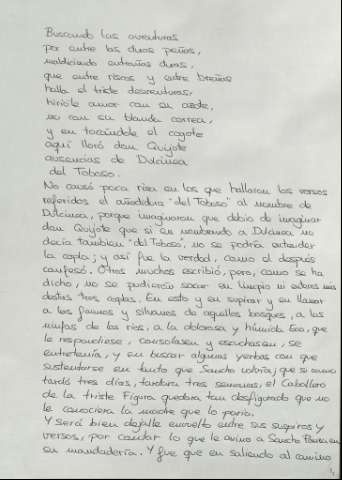 Buscando las aventuras
por entre las duras peñas,
maldiciendo entrañas duras,
que entre riscos y entre breñas
halla el triste desventuras,
hirióle amor con su azote,
no con su blanda correa,
y en tocándole el cogote
aquí lloró don Quijote
ausencias de Dulcinea
del Toboso.
No causó poca risa en los que hallaron los versos
referidos el añadidura "del Toboso" al nombre de
Dulcinea, porque imaginaron que debió de imaginar
don Quijote que si en nombrando a Dulcinea no
decía también "del Toboso", no se podría entender
la copla; y así fue la verdad, como él después
confesó. Otros muchos escribió, pero, como se ha
dicho, no se pudieron sacar en limpio ni enteros más
destas tres coplas. En esto y en suspirar y en llamar
a los faunos y silvanos de aquellos bosques, a las
ninfas de los ríos, a la dolorosa y húmida Eco, que
le respondiese, consolasen y escuchasen, se
entretenía, y en buscar algunas yerbas con que
sustentarse en tanto que Sancho volvía; que si como
tardó tres días, tardara tres semanas, el Caballero
de la Triste Figura quedara tan desfigurado que no
le conociera la madre que lo parió.
Y será bien dejalle envuelto entre sus suspiros y
versos, por contar lo que le avino a Sancho Panza en
su mandadería. Y fue que en saliendo al camino